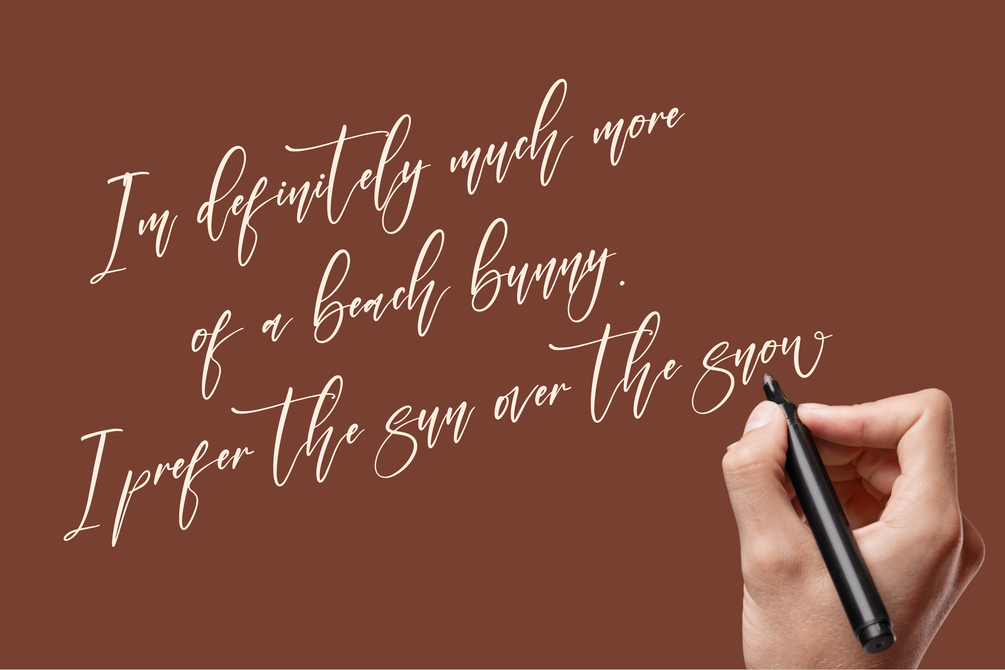 Im definitely much more
of a beach bunny.
I prefer the sun over the snow